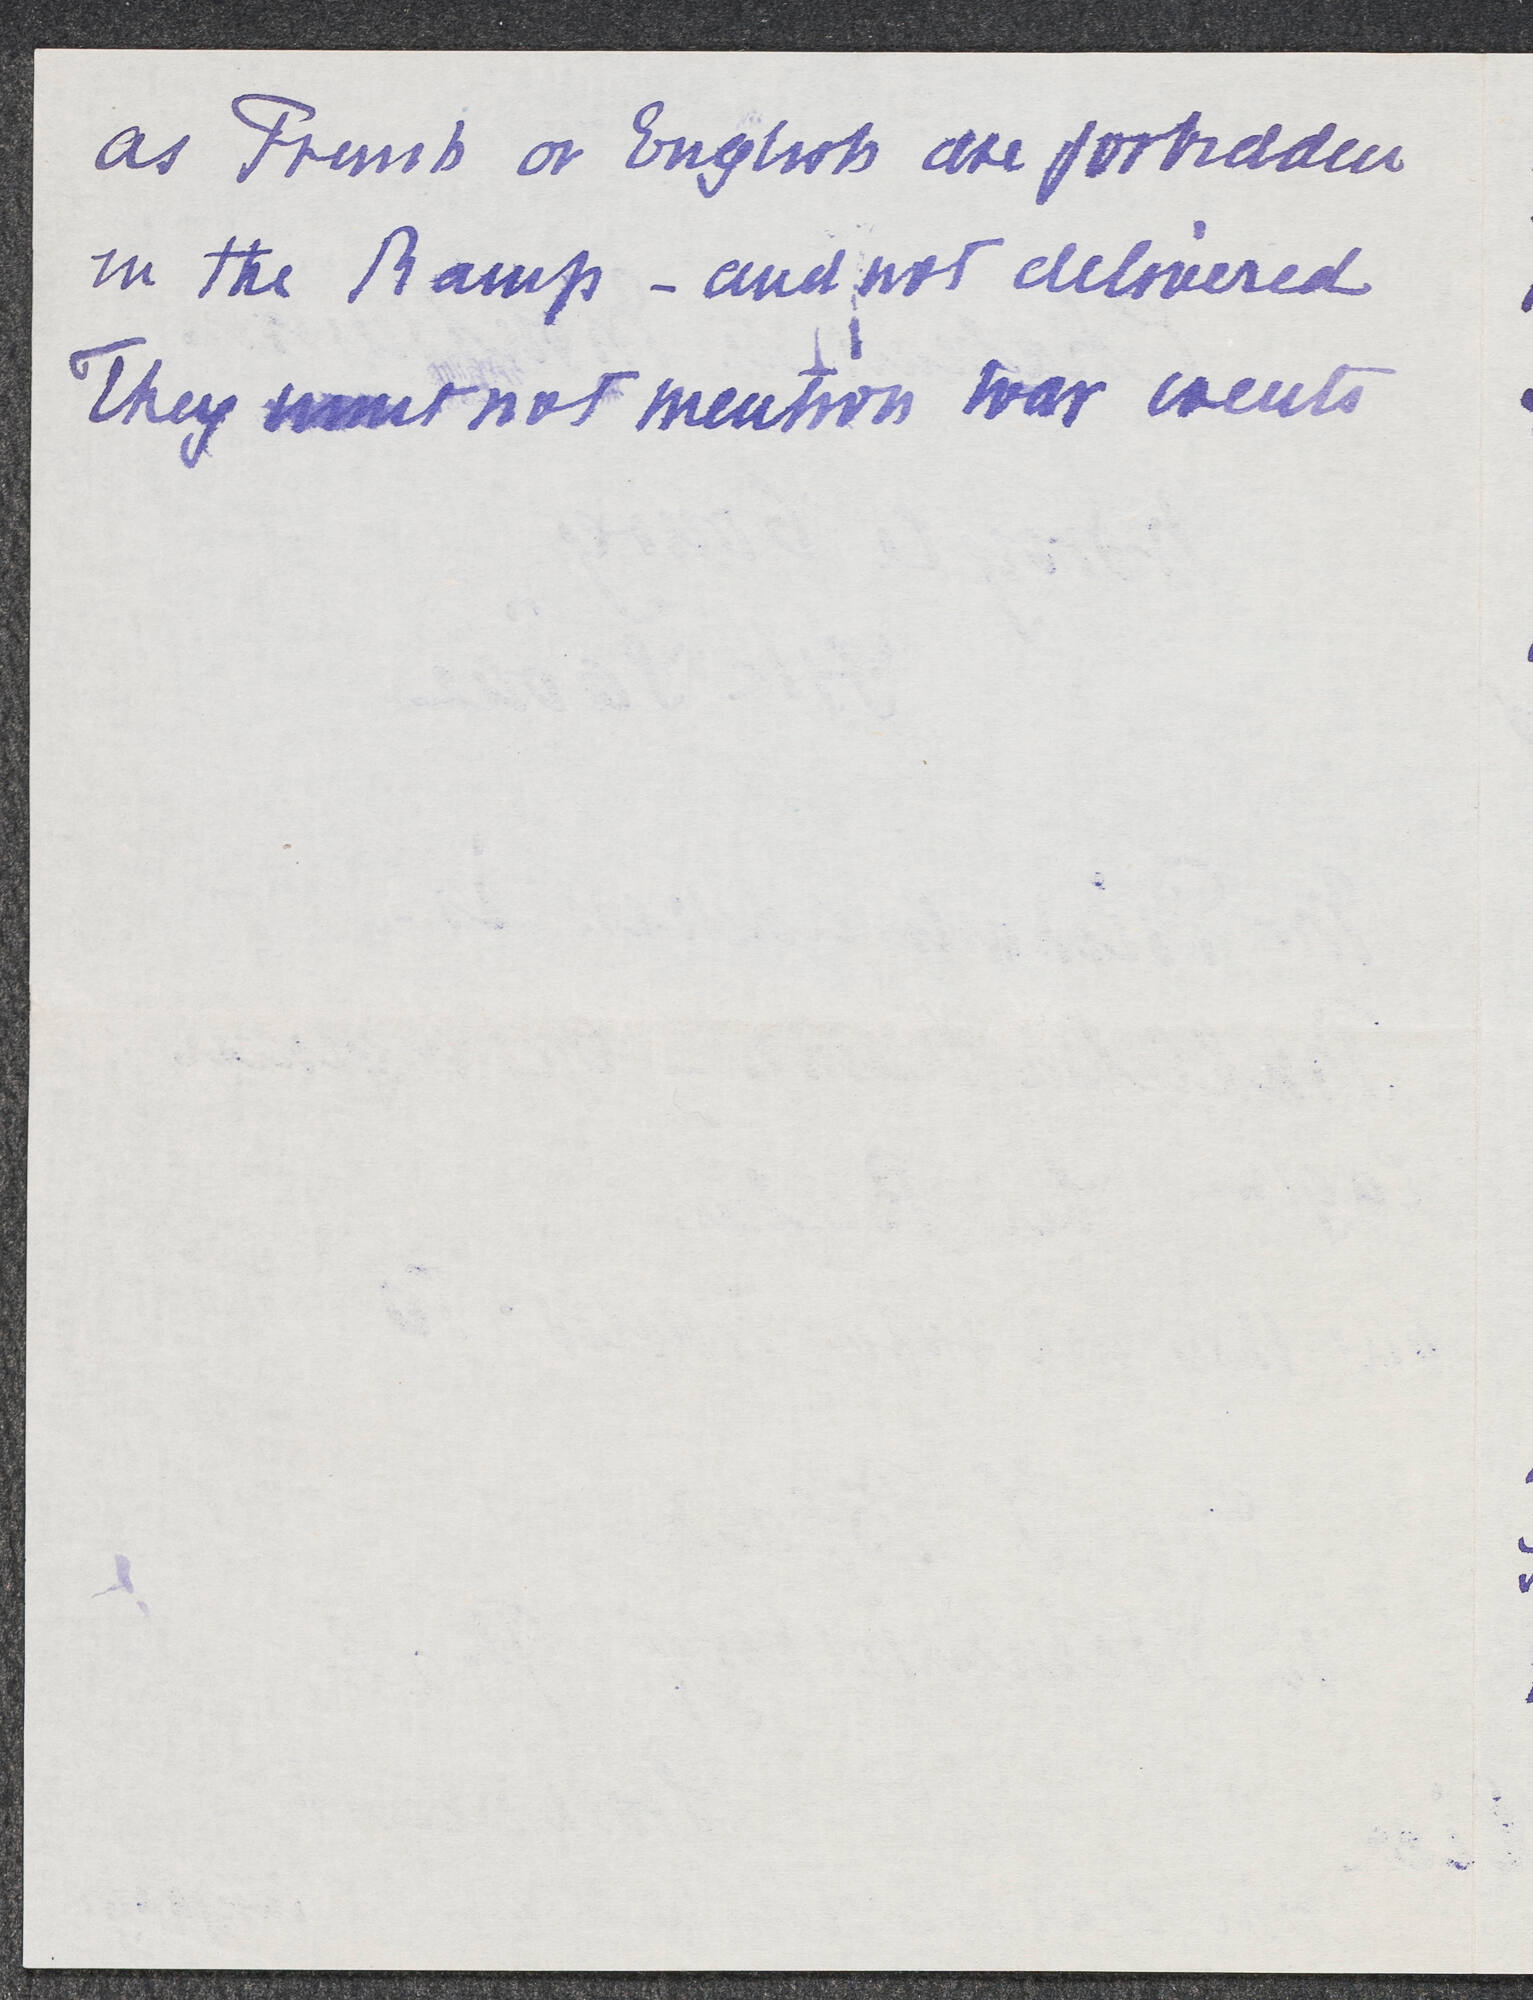 as French or English are forbidden
in the Kamp - and not delivered
They must not mention war events